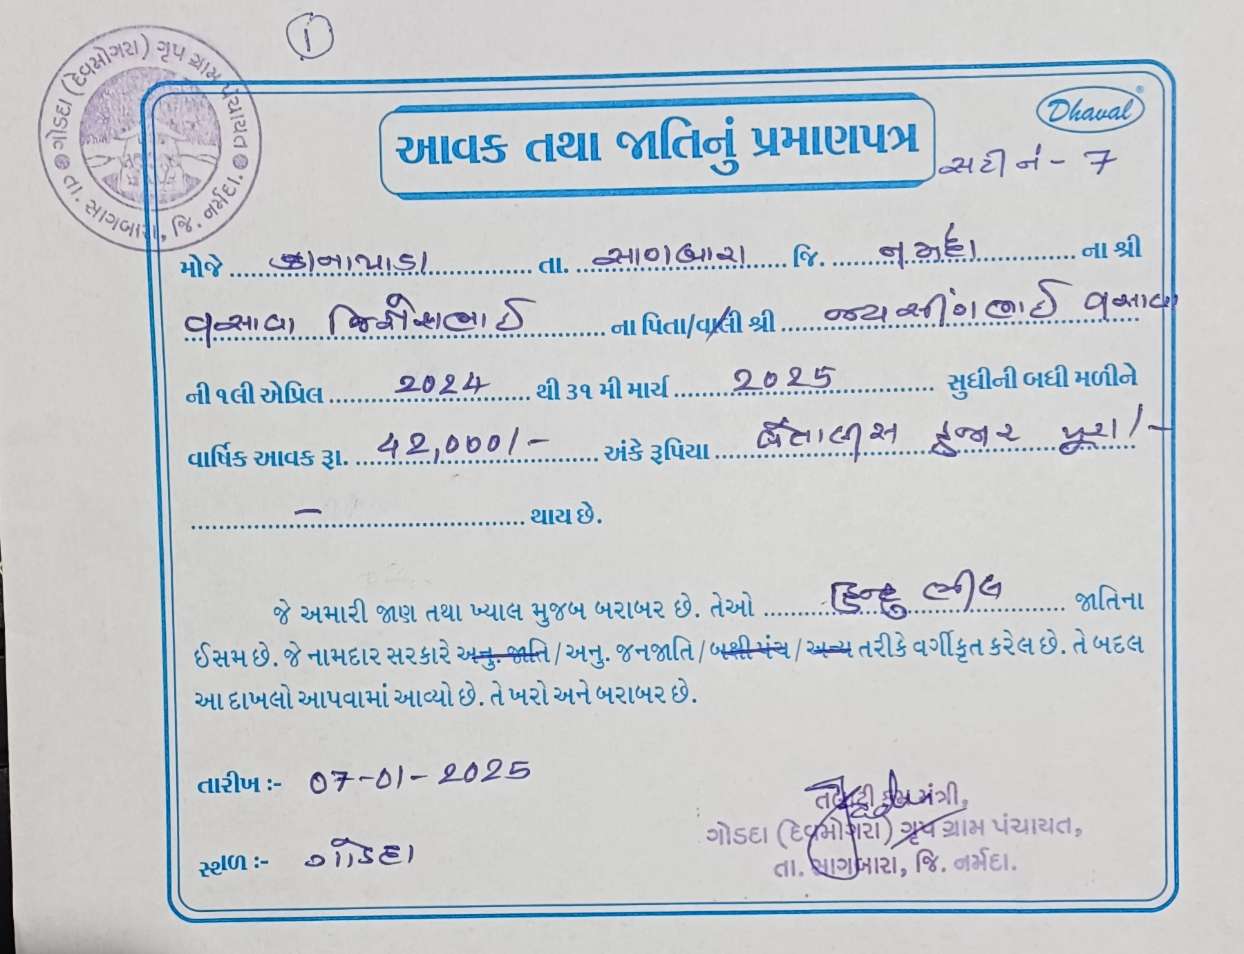 1
ગોડદા (દેવમોગરા) ગૃપ ગ્રામ પંચાયત
તા. સાગબારા, જિ. નર્મદા.
Dhaval
આવક તથા જાતિનું પ્રમાણપત્ર
સર્ટી નં - 7
મોજે કાનાપાડા તા. સાગબારા જિ. નર્મદા ના શ્રી
વસાવા જિજ્ઞેશભાઈ ના પિતા/વાલી શ્રી જયસીંગભાઈ વસાવા
ની ૧લી એપ્રિલ 2024 થી ૩૧ મી માર્ચ 2025 સુધીની બધી મળીને
વાર્ષિક આવક રૂા. 42,000/- અંકે રૂપિયા બેંતાલીસ હજાર પૂરા/-
- થાય છે.
જે અમારી જાણ તથા ખ્યાલ મુજબ બરાબર છે. તેઓ હિન્દુ ભીલ જાતિના
ઈસમ છે. જે નામદાર સરકારે અનુ. જાતિ/અનુ. જનજાતિ/બક્ષી પંચ/અન્ય તરીકે વર્ગીકૃત કરેલ છે. તે બદલ
આ દાખલો આપવામાં આવ્યો છે. તે ખરો અને બરાબર છે.
તારીખ :- 07-01-2025
સ્થળ :- ગોડદા
તલાટી કમ મંત્રી,
ગોડદા (દેવમોગરા) ગૃપ ગ્રામ પંચાયત,
તા. સાગબારા, જિ. નર્મદા.